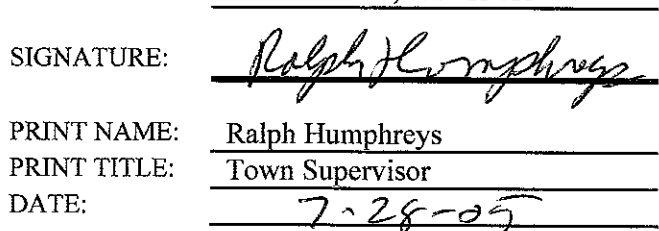 SIGNATURE: Ralph Humphreys
PRINT NAME: Ralph Humphreys
PRINT TITLE: Town Supervisor
DATE: 7-28-05